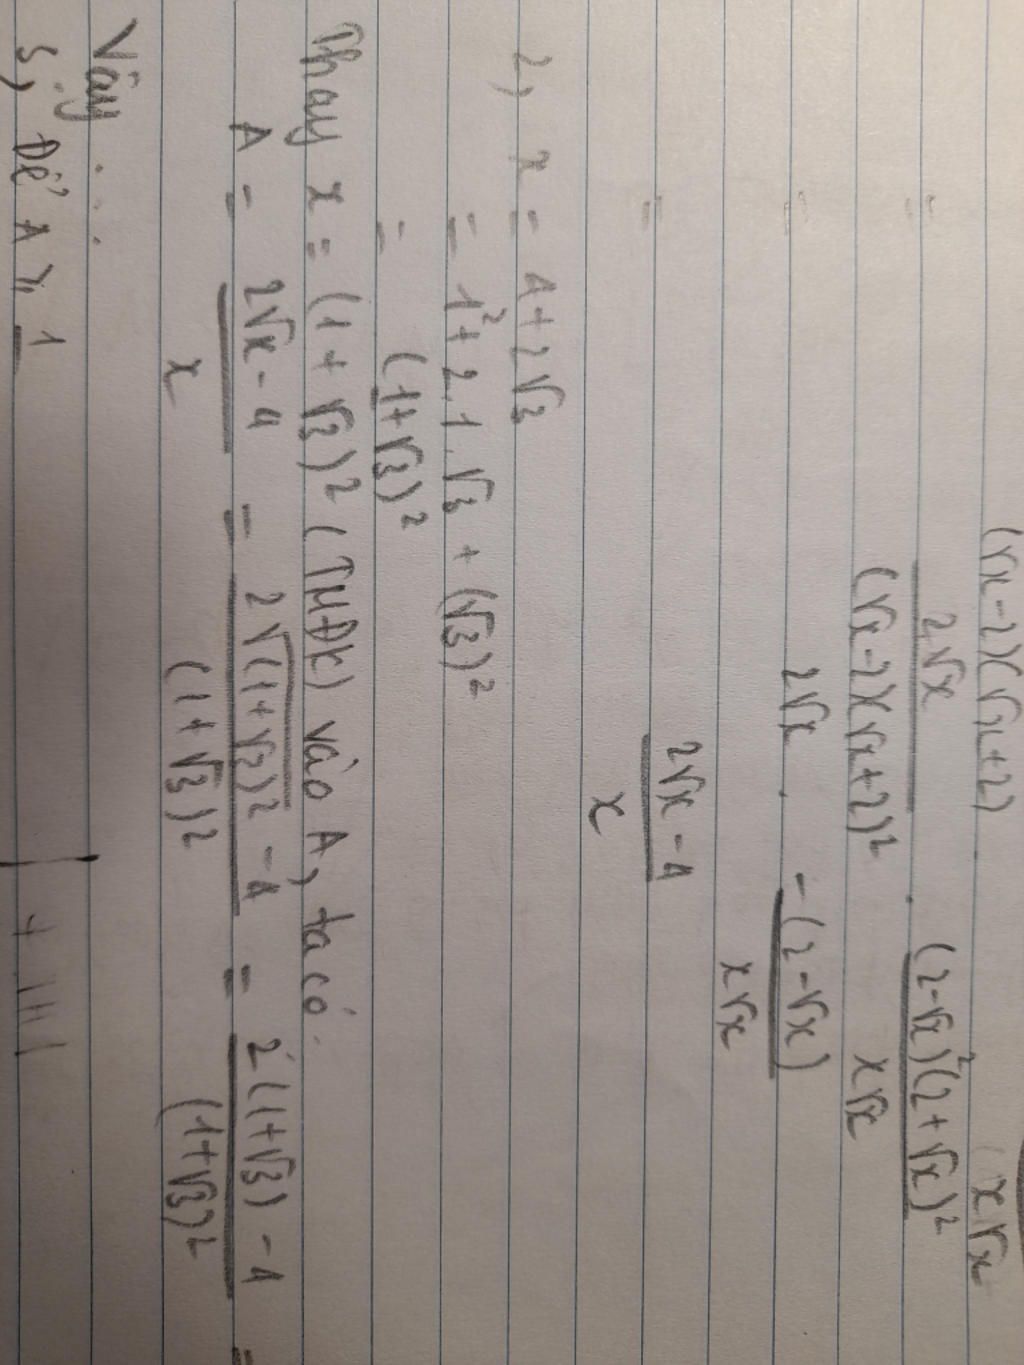 (√x-2)(√x+2) . x√x
= 2√x / (√x-2)(√x+2)² . (2-√x)²(2+√x)² / x√x
= 2√x . -(2-√x) / x√x
= 2√x - 4 / x
2, x = 4+2√3
= 1²+2.1.√3 + (√3)²
= (1+√3)²
Thay x = (1+√3)² (TMĐK) vào A, ta có
A = 2√x - 4 / x = 2√(1+√3)² - 4 / (1+√3)² = 2(1+√3) - 4 / (1+√3)² =
Vậy ...
3, Để A ≥ 1